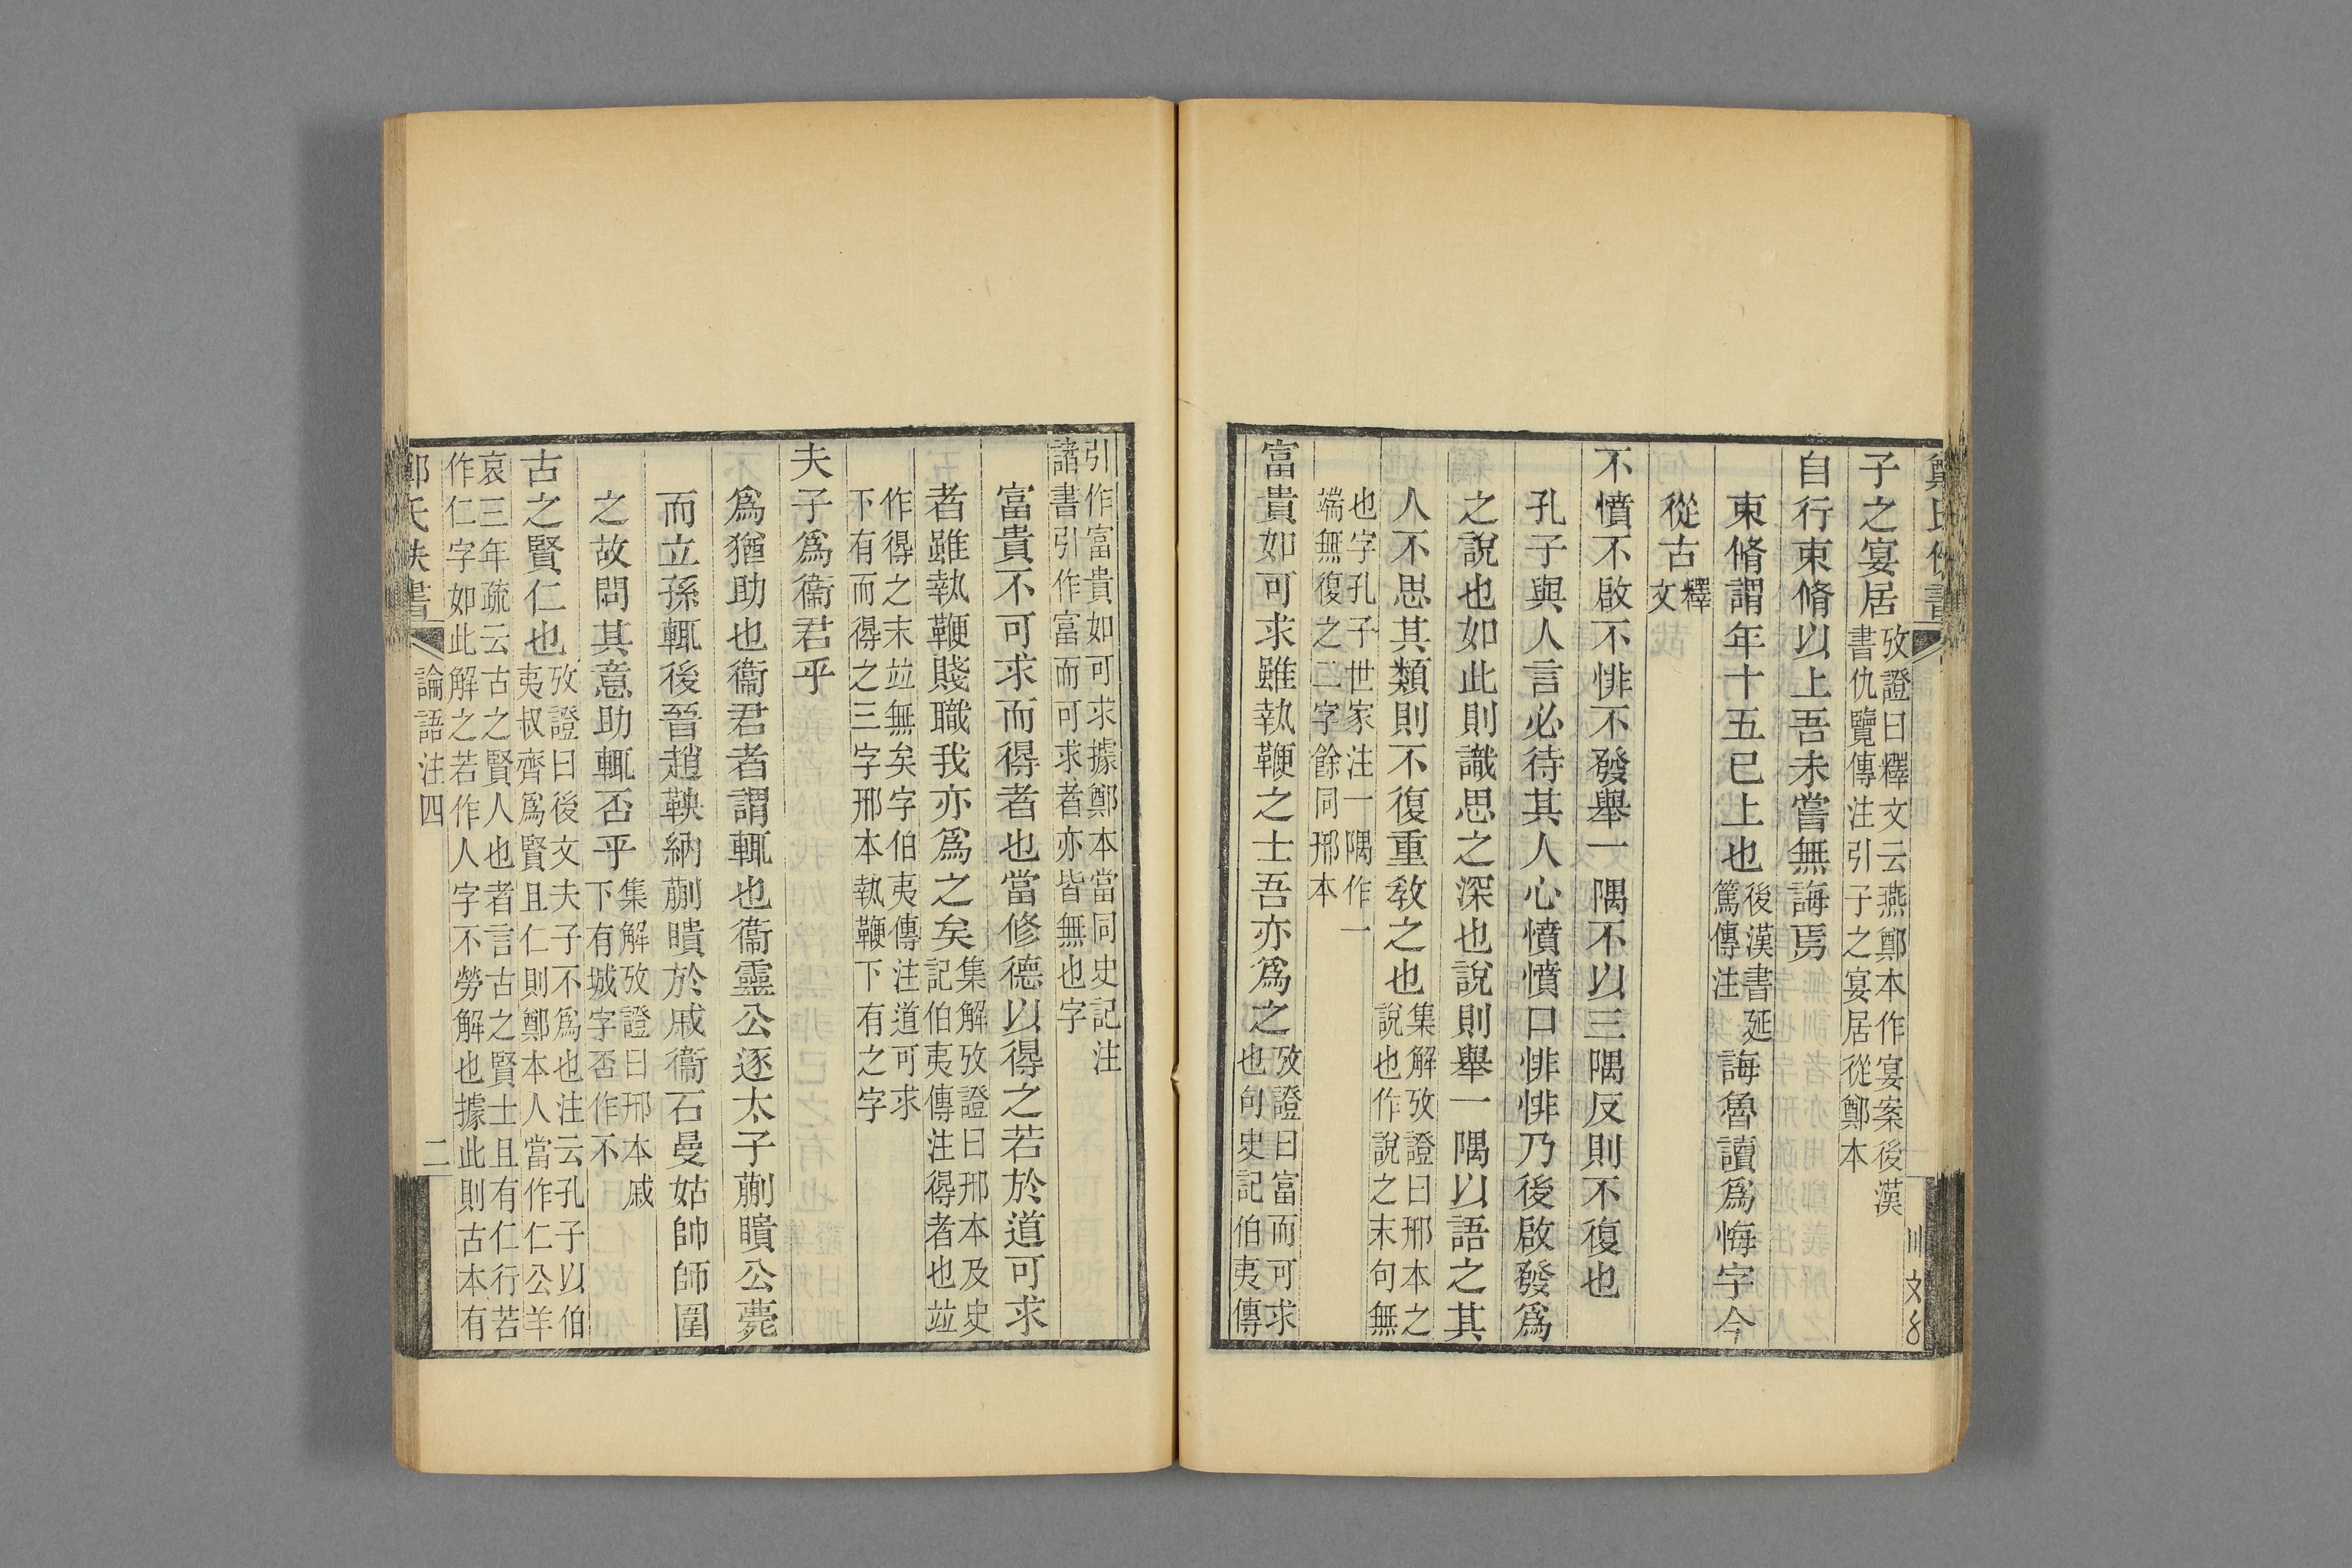 子之宴居攷證曰釋文云燕鄭本作宴案後漢
書仇覽傳注引子之宴居從鄭本
自行束脩以上吾未嘗無誨焉
束脩謂年十五已上也後漢書延
篤傳注誨魯讀爲悔字今
從古釋
文
不憤不啟不悱不發舉一隅不以三隅反則不復也
孔子與人言必待其人心憤憤口悱悱乃後啟發爲
之說也如此則識思之深也說則舉一隅以語之其
人不思其類則不復重敎之也集解攷證曰邢本之
說也作說之末句無
也字孔子世家注一隅作一
端無復之二字餘同邢本
富貴如可求雖執鞭之士吾亦爲之攷證曰富而可求
也句史記伯夷傳
引作富貴如可求據鄭本當同史記注
諸書引作富而可求者亦皆無也字
富貴不可求而得者也當修德以得之若於道可求
者雖執鞭賤職我亦爲之矣集解攷證曰邢本及史
記伯夷傳注得者也竝
作得之末竝無矣字伯夷傳注道可求
下有而得之三字邢本執鞭下有之字
夫子爲衞君乎
爲猶助也衞君者謂輒也衞靈公逐太子蒯聵公薨
而立孫輒後晉趙鞅納蒯聵於戚衞石曼姑帥師圍
之故問其意助輒否乎集解攷證曰邢本戚
下有城字否作不
古之賢仁也攷證曰後文夫子不爲也注云孔子以伯
夷叔齊爲賢且仁則鄭本人當作仁公羊
哀三年疏云古之賢人也者言古之賢士且有仁行若
作仁字如此解之若作人字不勞解也據此則古本有
論語注四
二